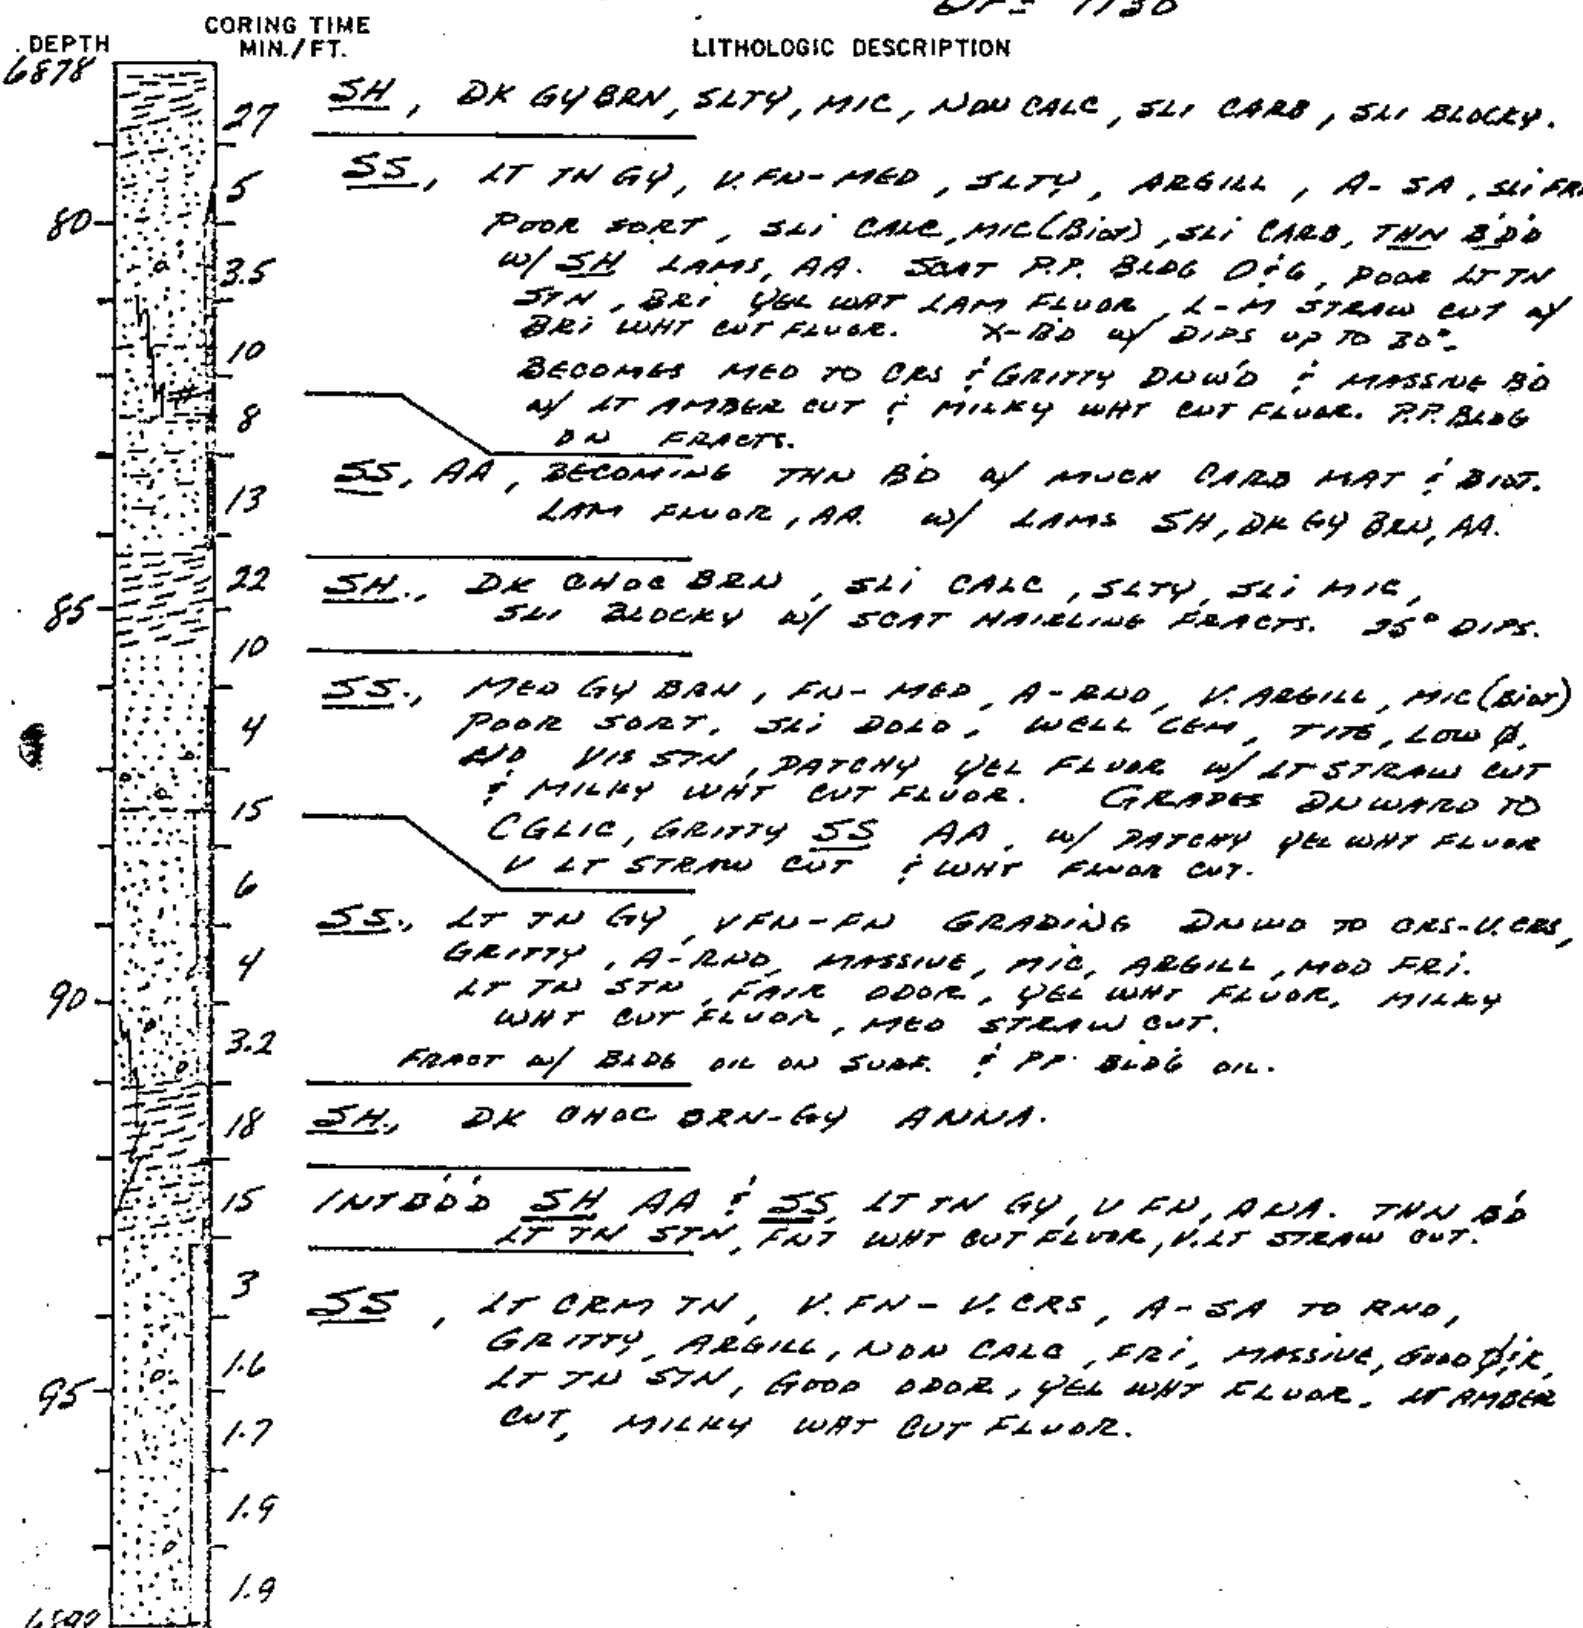 CORING TIME
DEPTH MIN./FT. LITHOLOGIC DESCRIPTION
6878
27 SH, DK GY BRN, SLTY, MIC, NON CALC, SLI CARB, SLI BLOCKY.
5 SS, LT TN GY, V. FN-MED, SLTY, ARGILL, A-SA, SLI FRI
80 POOR SORT, SLI CALC, MIC (BIOT), SLI CARB, THN BDD
3.5 W/ SH LAMS, AA. SCAT P.P. BLDG O&G, POOR LT TN
STN, BRI YEL WHT LAM FLUOR, L-M STRAW CUT W/
BRI WHT CUT FLUOR. X-BD W/ DIPS UP TO 30°.
10 BECOMES MED TO CRS & GRITTY DNW'D & MASSIVE BD
8 W/ LT AMBER CUT & MILKY WHT CUT FLUOR. P.P. BLDG
ON FRACTS.
SS, AA, BECOMING THN BD W/ MUCH CARB MAT & BIOT.
13 LAM FLUOR, AA. W/ LAMS SH, DK GY BRN, AA.
22 SH., DK CHOC BRN, SLI CALC, SLTY, SLI MIC,
85 SLI BLOCKY W/ SCAT HAIRLINE FRACTS. 25° DIPS.
10
SS., MED GY BRN, FN-MED, A-RND, V. ARGILL, MIC (BIOT)
4 POOR SORT, SLI DOLO, WELL CEM, TITE, LOW Ø.
N/O VIS STN, PATCHY YEL FLUOR W/ LT STRAW CUT
15 & MILKY WHT CUT FLUOR. GRADES DNWARD TO
CGLIC, GRITTY SS AA, W/ PATCHY YEL WHT FLUOR
6 V LT STRAW CUT & WHT FLUOR CUT.
SS., LT TN GY, VFN-FN GRADING DNWD TO CRS-V. CRS,
4 GRITTY, A-RND, MASSIVE, MIC, ARGILL, MOD FRI.
90 LT TN STN, FAIR ODOR, YEL WHT FLUOR, MILKY
WHT CUT FLUOR, MED STRAW CUT.
3.2 FRACT W/ BLDG OIL ON SURF. & PP. BLDG OIL.
18 SH., DK CHOC BRN-GY ANNA.
15 INTBDD SH AA & SS, LT TN GY, V FN, ANA. THN BD
LT TN STN, FNT WHT CUT FLUOR, V. LT STRAW CUT.
3 SS, LT CRM TN, V. FN-V. CRS, A-SA TO RND,
1.6 GRITTY, ARGILL, NON CALC, FRI, MASSIVE, GOOD Ø & K,
95 LT TN STN, GOOD ODOR, YEL WHT FLUOR. LT AMBER
1.7 CUT, MILKY WHT CUT FLUOR.
1.9
1.9